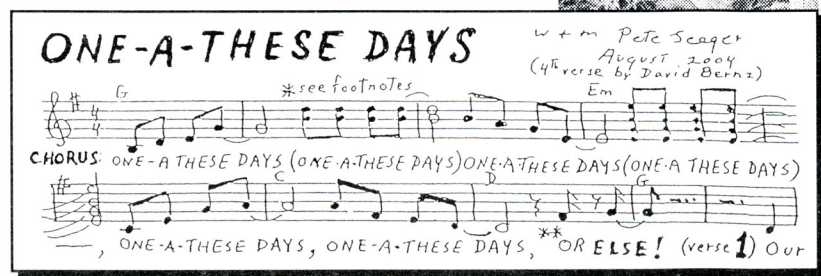 ONE-A-THESE DAYS
w + m Pete Seeger
August 2004
(4th verse by David Bernz)
G *see footnotes Em
CHORUS: ONE-A THESE DAYS (ONE-A-THESE DAYS) ONE-A-THESE DAYS (ONE-A THESE DAYS)
C D G
——, ONE-A-THESE DAYS, ONE-A-THESE DAYS, **OR ELSE! (verse 1) Our